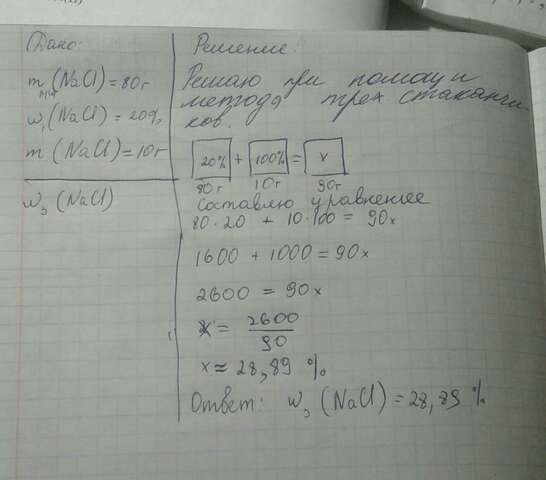 Дано:
m р-ра (NaCl) = 80г
w₁ (NaCl) = 20%
m (NaCl) = 10г
w₃ (NaCl)
Решение:
Решаю при помощи
метода трех стаканчи-
ков.
20% + 100% = x
80г 10г 90г
Составлю уравнение
80·20 + 10·100 = 90x
1600 + 1000 = 90x
2600 = 90x
x = 2600/90
x ≈ 28,89 %
Ответ: w₃ (NaCl) = 28,89 %